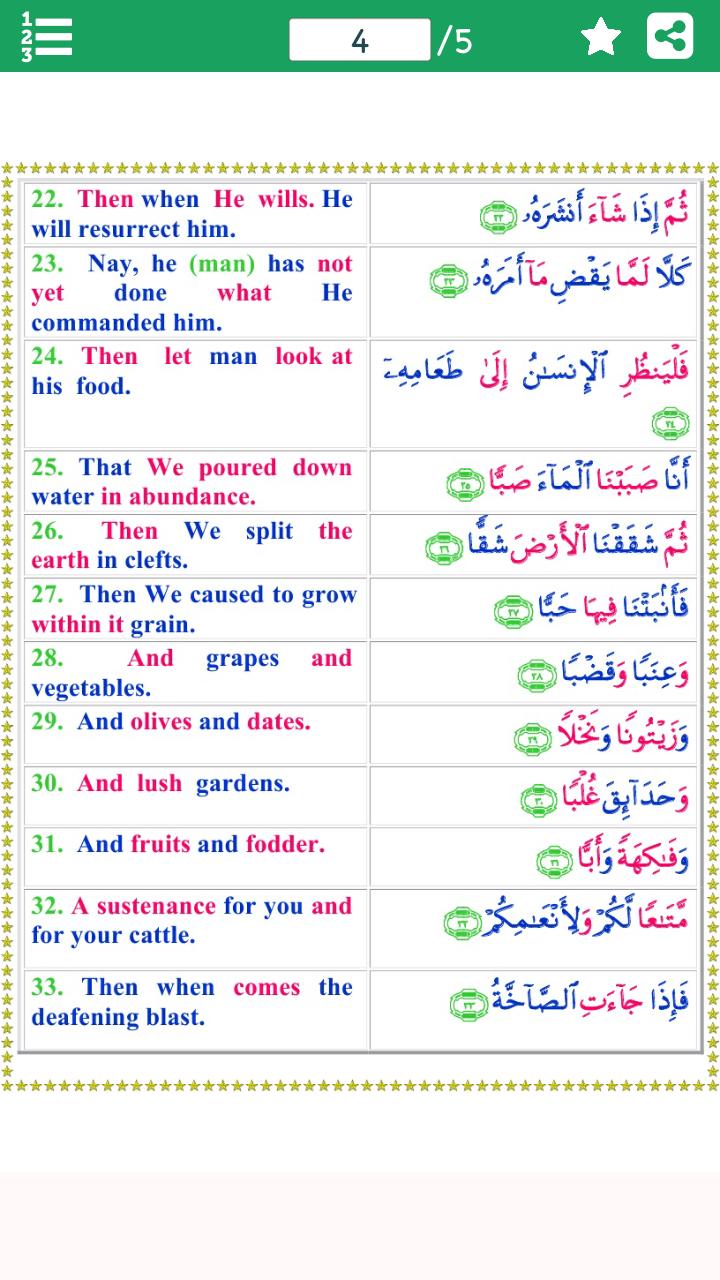 1
2
3
4 /5
22. Then when He wills. He
will resurrect him.
ثُمَّ إِذَا شَآءَ أَنشَرَهُۥ ٢٢
23. Nay, he (man) has not
yet done what He
commanded him.
كَلَّا لَمَّا يَقْضِ مَآ أَمَرَهُۥ ٢٣
24. Then let man look at
his food.
فَلْيَنظُرِ ٱلْإِنسَـٰنُ إِلَىٰ طَعَامِهِۦٓ
٢٤
25. That We poured down
water in abundance.
أَنَّا صَبَبْنَا ٱلْمَآءَ صَبًّا ٢٥
26. Then We split the
earth in clefts.
ثُمَّ شَقَقْنَا ٱلْأَرْضَ شَقًّا ٢٦
27. Then We caused to grow
within it grain.
فَأَنۢبَتْنَا فِيهَا حَبًّا ٢٧
28. And grapes and
vegetables.
وَعِنَبًا وَقَضْبًا ٢٨
29. And olives and dates.
وَزَيْتُونًا وَنَخْلًا ٢٩
30. And lush gardens.
وَحَدَآئِقَ غُلْبًا ٣٠
31. And fruits and fodder.
وَفَـٰكِهَةً وَأَبًّا ٣١
32. A sustenance for you and
for your cattle.
مَّتَـٰعًا لَّكُمْ وَلِأَنْعَـٰمِكُمْ ٣٢
33. Then when comes the
deafening blast.
فَإِذَا جَآءَتِ ٱلصَّآخَّةُ ٣٣